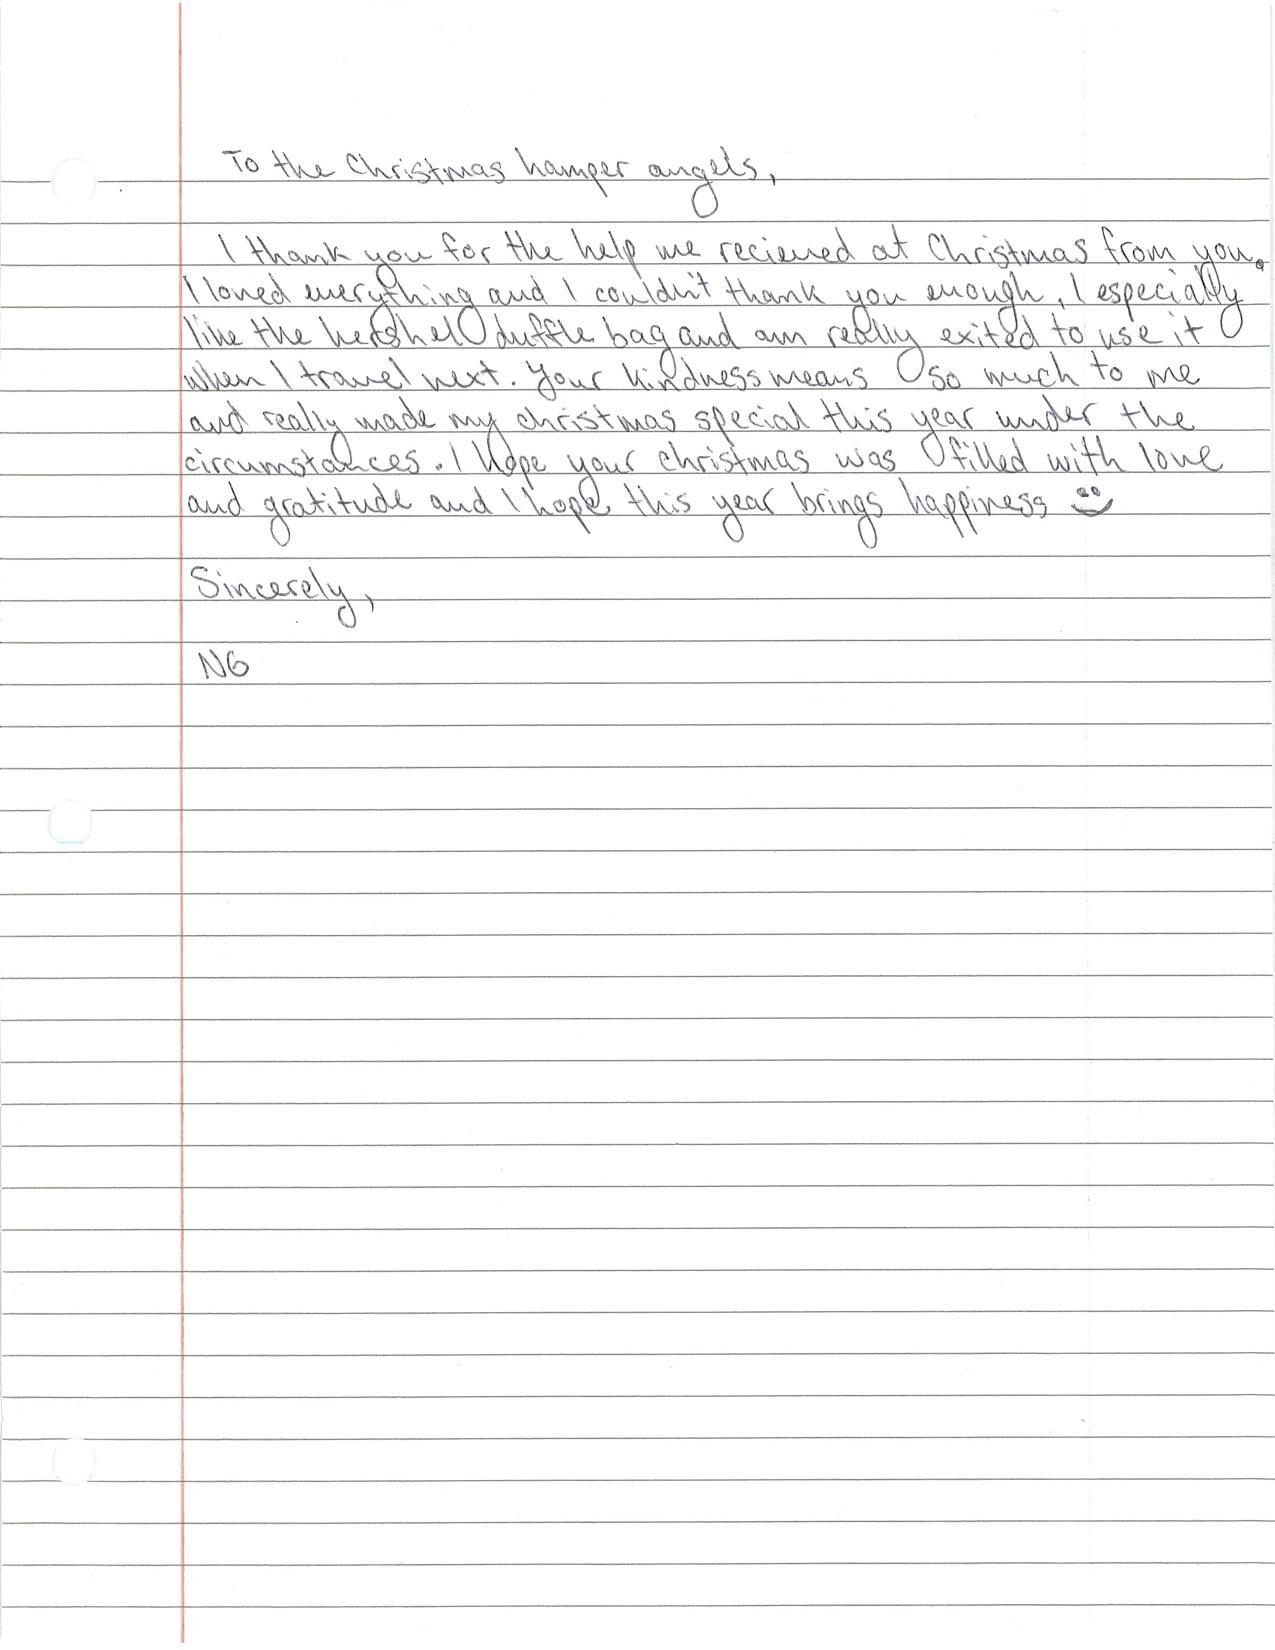 To the Christmas hamper angels,
I thank you for the help me recieved at Christmas from you.
I loved everything and I couldn't thank you enough, I especially
like the hershel duffle bag and am really exited to use it
when I travel next. Your kindness means so much to me
and really made my christmas special this year under the
circumstances. I hope your christmas was filled with love
and gratitude and I hope this year brings happiness
Sincerely,
NG